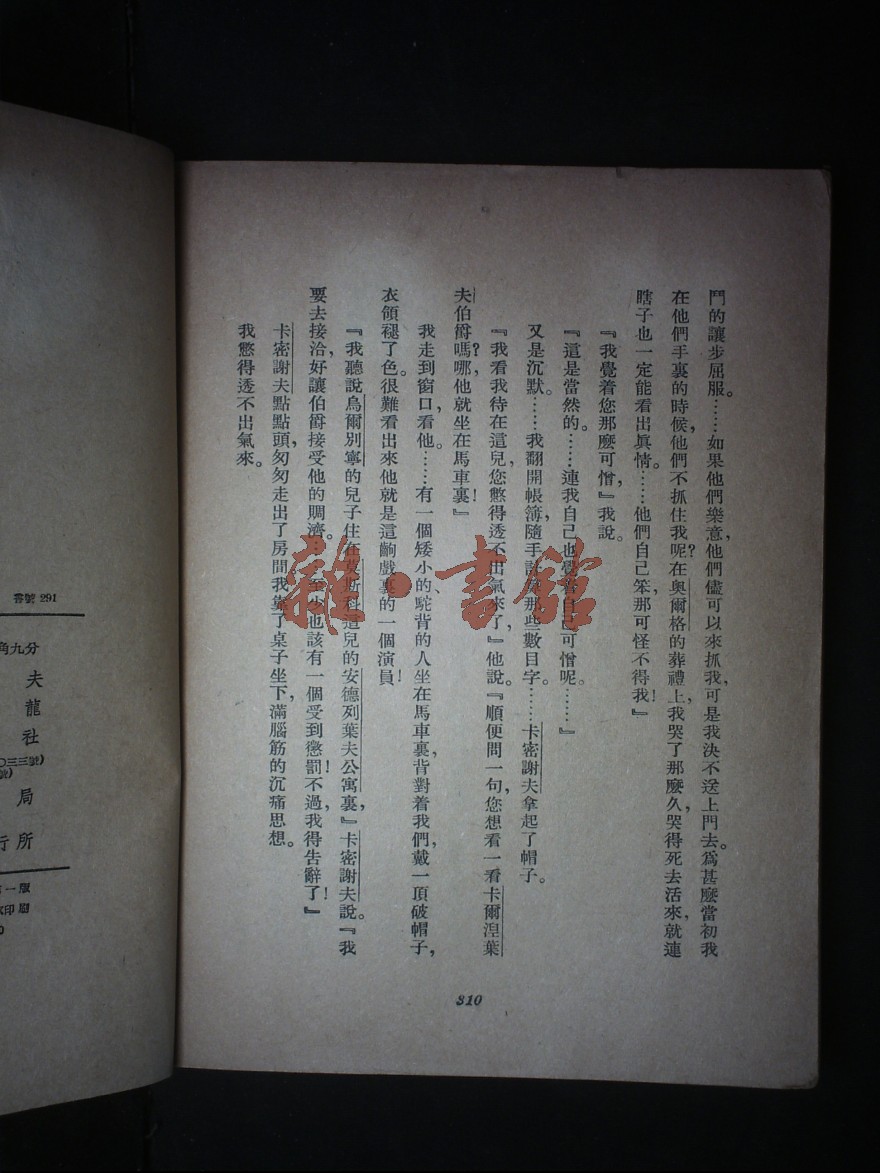 鬥的讓步屈服。……如果他們樂意，他們儘可以來抓我，可是我決不送上門去。爲甚麼當初我
在他們手裏的時候，他們不抓住我呢？在奧爾格的葬禮上，我哭了那麼久，哭得死去活來，就連
瞎子也一定能看出眞情。……他們自己笨，那可怪不得我！』
『我覺着您那麼可憎，』我說。
『這是當然的。……連我自己也覺着自己可憎呢。……』
又是沉默。……我翻開帳簿，隨手計算那些數目字。……卡密謝夫拿起了帽子。
『我看我待在這兒，您憋得透不出氣來了，』他說。『順便問一句，您想看一看卡爾涅葉
夫伯爵嗎？哪，他就坐在馬車裏！』
我走到窗口，看他。……有一個矮小的、駝背的人坐在馬車裏，背對着我們，戴一頂破帽子，
衣領褪了色。很難看出來他就是這齣戲裏的一個演員！
『我聽說烏爾別寧的兒子住在莫斯科這兒的安德列葉夫公寓裏，』卡密謝夫說。『我
要去接洽，好讓伯爵接受他的賙濟。……至少也該有一個受到懲罰！不過，我得告辭了！』
卡密謝夫點點頭，匆匆走出了房間。我靠了桌子坐下，滿腦筋的沉痛思想。
我憋得透不出氣來。
310
書號 291
角九分
夫
龍
社
〇三三號)
號)
局
行所
一版
印刷
0
雜·書館